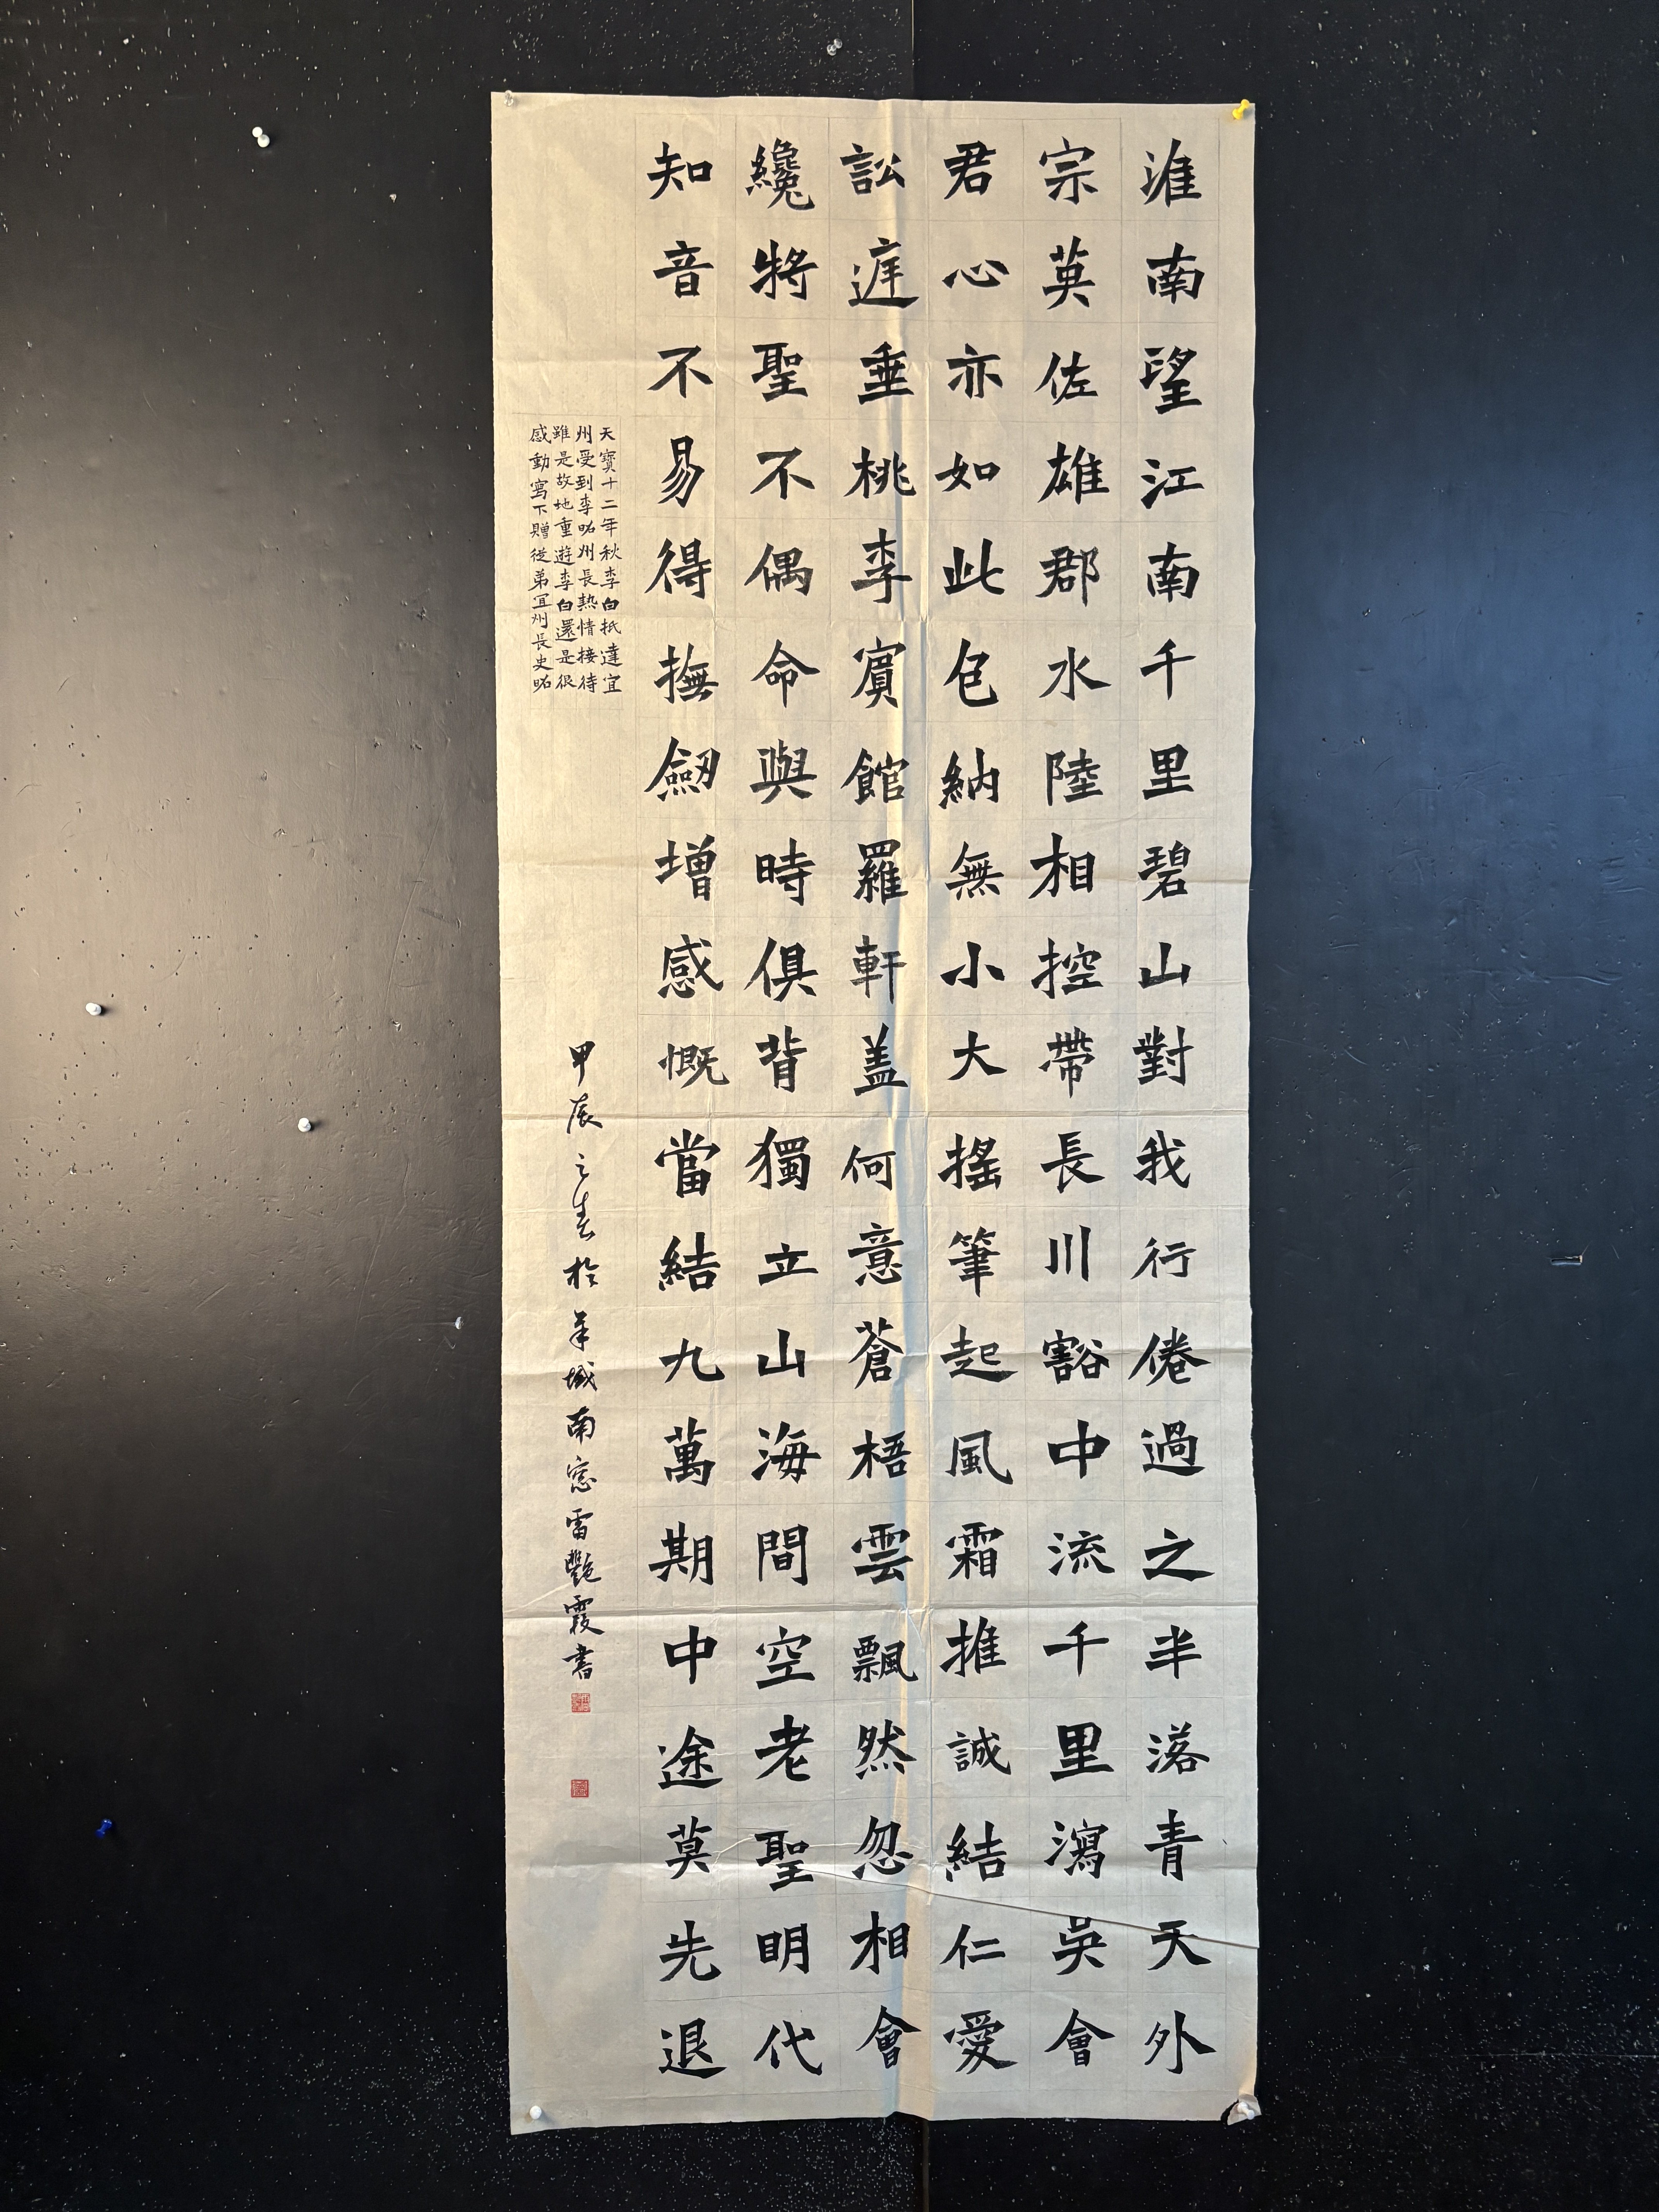 淮南望江南千里碧山對我行倦過之半落青天外
宗英佐雄郡水陸相控帶長川豁中流千里瀉吳會
君心亦如此包納無小大搖筆起風霜推誠結仁愛
訟庭垂桃李賓館羅軒盖何意蒼梧雲飄然忽相會
纔將聖不偶命與時俱背獨立山海間空老聖明代
知音不易得撫劒增感慨當結九萬期中途莫先退
天寶十二年秋李白抵達宜
州受到李昭州長熱情接待
雖是故地重遊李白還是很
感動寫下贈從弟宣州長史昭
甲辰之春於羊城南窓雷艷霞書